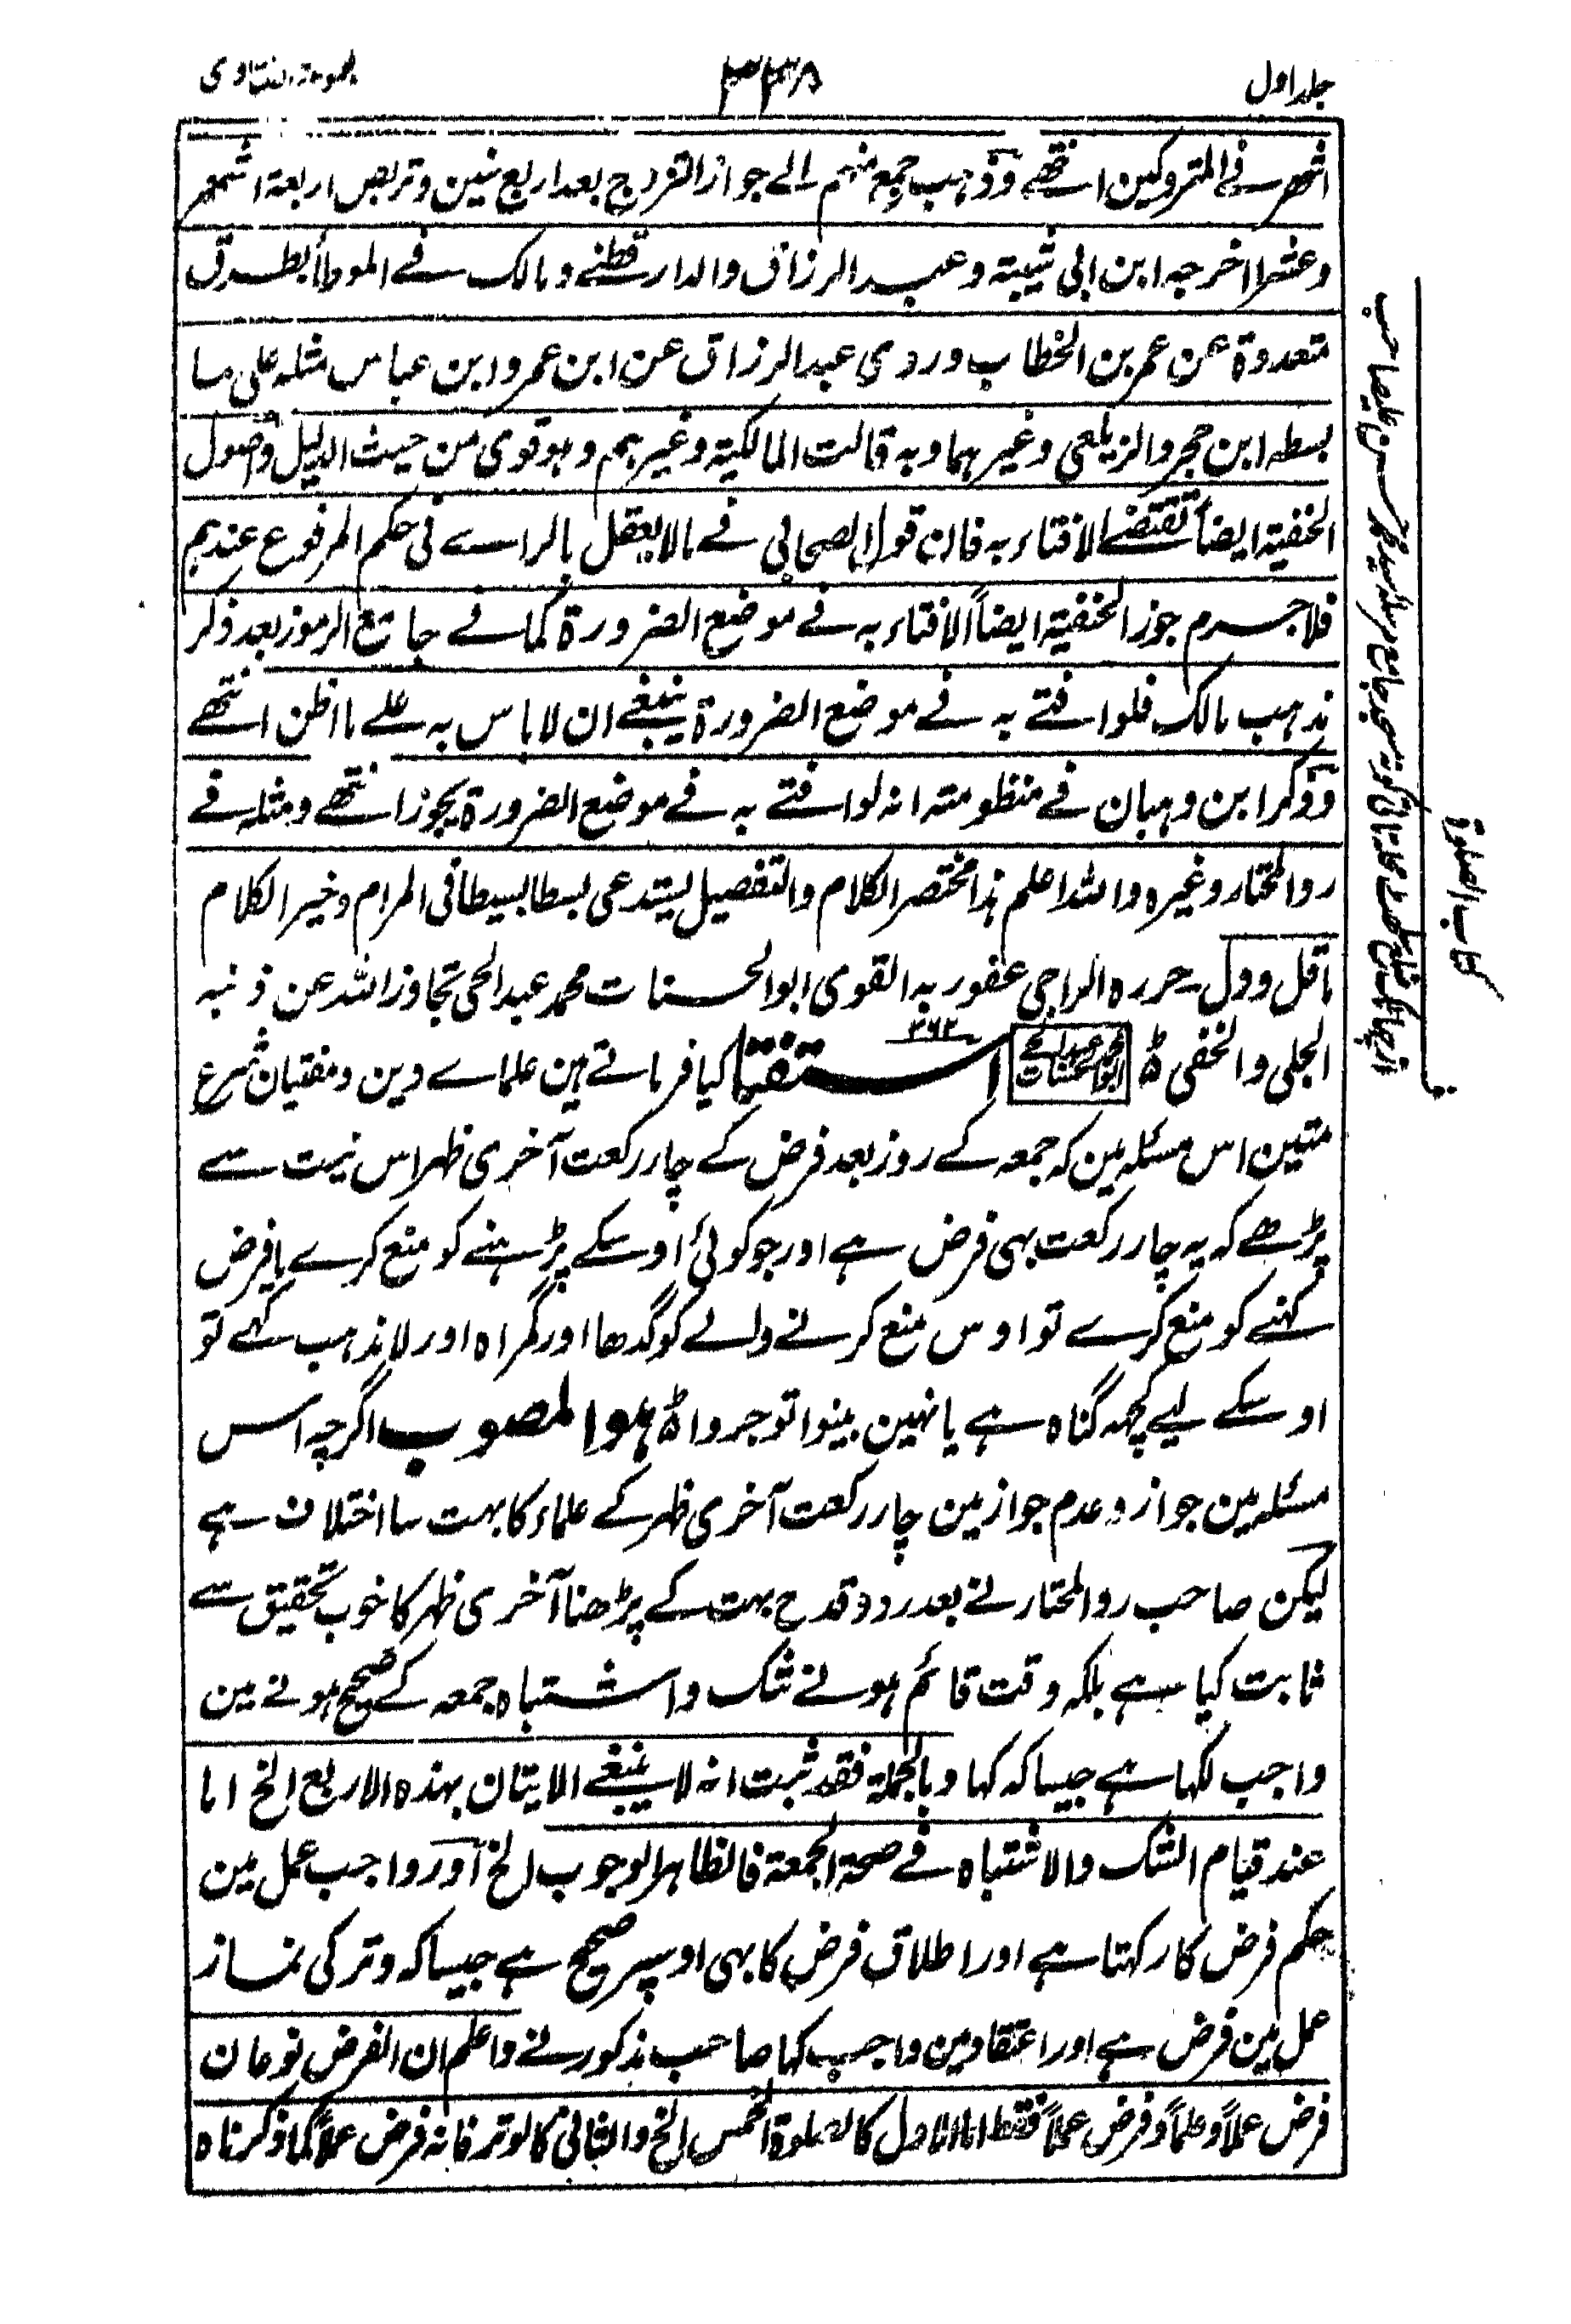 جلد اول
۳۳۸
مجموعہ فتاوی
اشهر فے المتروکین انتھے وذہب جمع منہم الے جواز التزوج بعد اربع سنین وتربص اربعة اشھر
وعشرا اخرجہ ابن ابی شیبة وعبد الرزاق والدارقطنے ومالک فے الموطأ بطرق
متعدوة عن عمر بن الخطاب وروی عبد الرزاق عن ابن عمر وابن عباس مثلہ علی ما
بسطہ ابن حجر والزیلعی وغیرہما وبہ قالت المالکیة وغیرہم وہو قوی من حیث الدلیل واصول
الحنفیة ایضاً تقتضے الافتاء بہ فان قول الصحابی فے مالا یعقل بالراے فی حکم المرفوع عندہم
فلا جرم جوز الحنفیة ایضاً الافتاء بہ فے موضع الضرورة کما فے جامع الرموز بعد ذکر
مذہب مالک فلو افتے بہ فے موضع الضرورة ینبغے ان لا باس بہ علے ما اظن انتھے
وذکر ابن وہبان فے منظومتہ انہ لو افتے بہ فے موضع الضرورة یجوز انتھے ومثلہ فے
رد المختار وغیرہ واللہ اعلم ہذا مختصر الکلام والتفصیل یستدعی بسطا بسیطا فی المرام وخیر الکلام
ماقل وول۔ حررہ الراجی عفو ربہ القوی ابو الحسنات محمد عبد الحی تجاوز اللہ عن ذنبہ
الجلی والخفی ۵ محمد عبد الحے ابو الحسنات استفتا ۳۶۲ کیا فرماتے ہین علماے دین ومفتیان شرع
متین اس مسئلہ مین کہ جمعہ کے روز بعد فرض کے چار رکعت آخری ظہر اس نیت سے
پڑھے کہ یہ چار رکعت بہی فرض ہے اور جو کوئی اوسکے پڑہنے کو منع کرے یا فرض
کہنے کو منع کرے تو اوس منع کرنے والے کو گدھا اور گمراہ اور لا مذہب کہے تو
اوسکے لیے کچہہ گناہ ہے یا نہین بینوا توجروا ۵ ہو المصوب اگرچہ اس
مسئلہ مین جواز وعدم جواز مین چار رکعت آخری ظہر کے علماء کا بہت سا اختلاف ہے
لیکن صاحب رد المختار نے بعد رد وقدح بہت کے پڑھنا آخری ظہر کا خوب تحقیق سے
ثابت کیا ہے بلکہ وقت قائم ہونے شک واشتباہ جمعہ کے صحیح ہونے مین
واجب لکہا ہے جیسا کہ کہا وبالجملة فقد ثبت انہ لا ینبغے الایتان بہذہ الاربع الخ اما
عند قیام الشک والاشتباہ فے صحة الجمعة فالظاہر الوجوب الخ اور واجب عمل مین
حکم فرض کا رکہتا ہے اور اطلاق فرض کا بہی اوسپر صحیح ہے جیسا کہ وتر کی نماز
عمل مین فرض ہے اور اعتقاد مین واجب کہا صاحب مذکور نے واعلم ان الفرض نوعان
فرض عملاً وعلماً وفرض عملاً فقط اما الاول کالصلوة الخمس الخ والثانی کالوتر فانہ فرض عملاً کما ذکرناہ
کتاب الصلوة